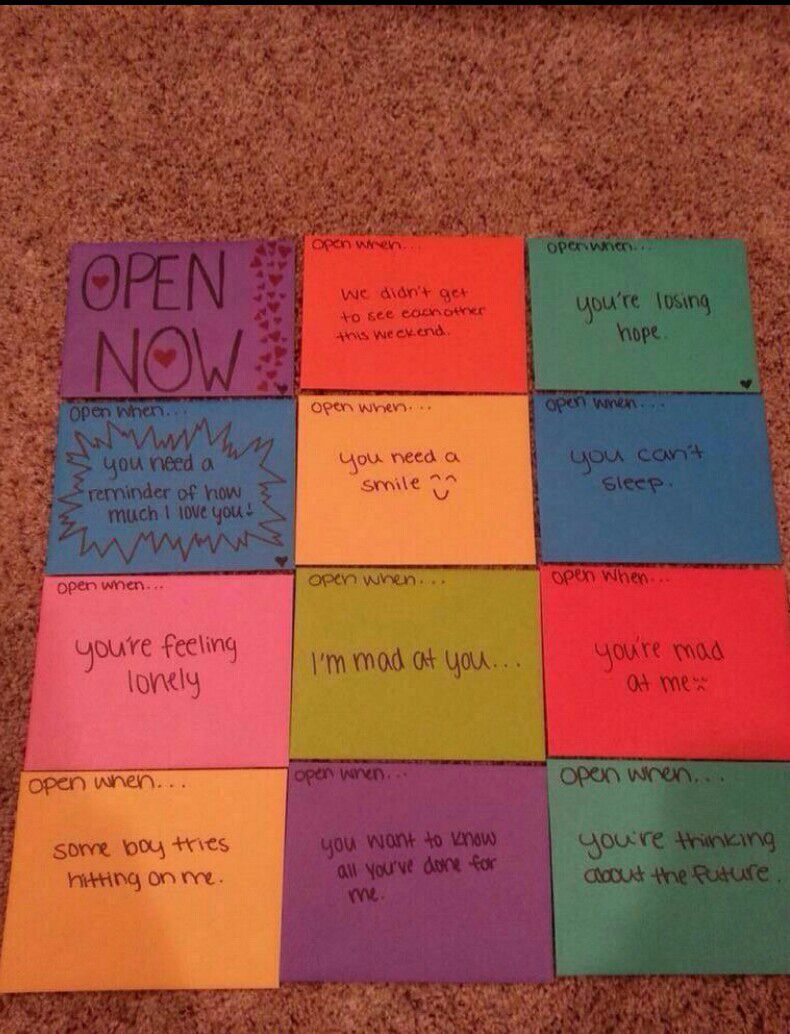 OPEN
NOW
open when...
we didn't get
to see eachother
this weekend.
open when...
you're losing
hope.
open when...
you need a
reminder of how
much I love you!
open when...
you need a
smile
open when...
you can't
sleep.
open when...
you're feeling
lonely
open when...
I'm mad at you...
open when...
you're mad
at me
open when...
some boy tries
hitting on me.
open when...
you want to know
all you've done for
me.
open when...
you're thinking
about the future.